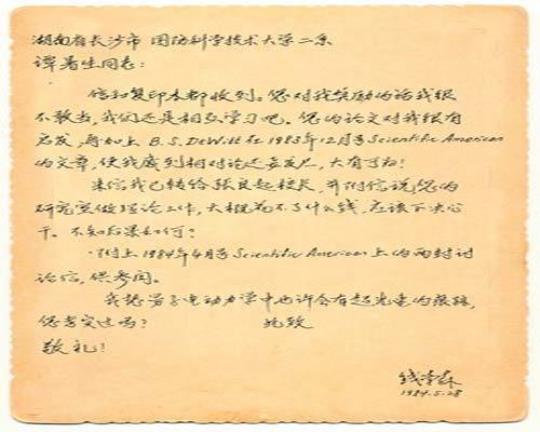 湖南省长沙市 国防科学技术大学二系
谭暑生同志:
信和复印本都收到。您对我奖励的话我很
不敢当,我们还是相互学习吧。您的论文对我很有
启发,再加上 B.S. DeWitt 在1983年12月号Scientific American
的文章,使我感到相对论还要发展,大有可为!
来信我已转给张良起校长,并附信说您的
研究室做理论工作,大概花不了什么钱,应该下决心
干。不知后果如何?
附上1984年4月号Scientific American上的两封讨
论信,供参阅。
我想量子电动力学中也许会有超光速的痕迹,
您考虑过吗? 此致
敬礼!
钱学森
1984.5.28